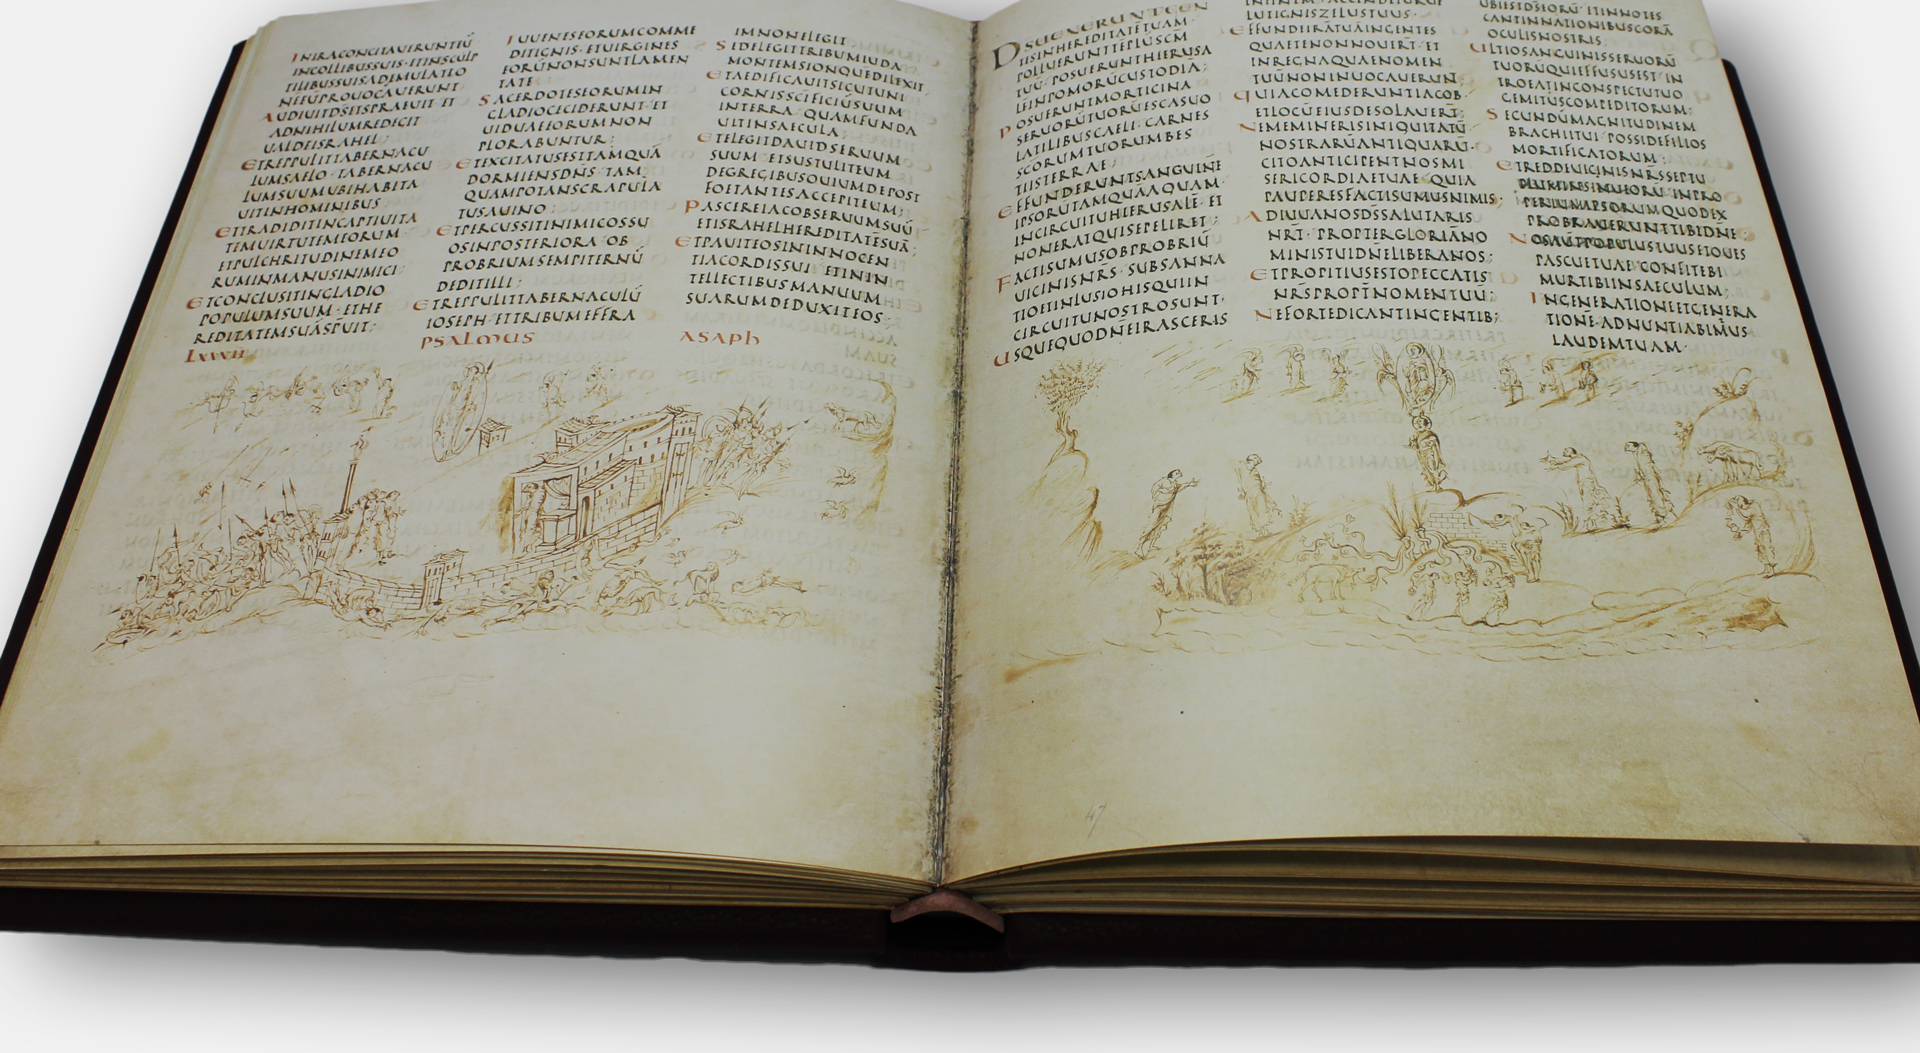 INIRACONCITAUERUNTEŪ
INCOLLIBUSSUIS·ETINSCULP
TILIBUSSUISADEMULATIO
NEEŪPROUOCAUERUNT
AUDIUITDS̄ETSPRAEUIT·ET
ADNIHILUMREDIGIT
UALDEISRAHEL;
ETREPPULITTABERNACU
LUMSAELO·TABERNACU
LUMSUUMUBIHABITA
UITINHOMINIBUS
ETTRADIDITINCAPTIUITA
TEMUIRTUTEMEORUM·
ETPULCHRITUDINEMEO
RUMINMANUSINIMICI;
ETCONCLUSITINGLADIO
POPULUMSUUM·ETHE
REDITATEMSUĀSPUIT;
IUUENESEORUMCOMME
DITIGNIS·ETUIRGINES
EORŪNONSUNTLAMEN
TATE
SACERDOTESEORUMIN
CLADIOCECIDERUNT·ET
UIDUAEEORUMNON
PLORABUNTUR;
ETEXCITATUSESTTAMQUĀ
DORMIENSDN̄S·TAM
QUAMPOTANSCRAPULA
TUSAUINO;
ETPERCUSSITINIMICOSSU
OSINPOSTERIORA·OB
PROBRIUMSEMPITERNŪ
DEDITILLI;
ETREPPULITTABERNACULŪ
IOSEPH·ETTRIBUMEFFRA
IMNONELEGIT
SEDELEGITTRIBUMIUDA
MONTEMSIONQUEDILEXIT
ETAEDIFICAUITSICUTUNI
CORNISSC̄IFICIŪSUUM
INTERRA·QUAMFUNDA
UITINSAECULA;
ETELEGITDAUIDSERUUM
SUUM·ETSUSTULITEUM
DEGREGIBUSOUIUMDEPOST
FOETANTESACCEPITEUM;
PASCEREIACOBSERUUMSUŪ
ETISRAHELHEREDITATĒSUĀ;
ETPAUITEOSININNOCEN
TIACORDISSUI·ETININ
TELLECTIBUSMANUUM
SUARUMDEDUXITEOS;
PSALMUS ASAPH
DS̄UENERUNTGEN
TESINHEREDITATĒTUAM·
POLLUERUNTTĒPLŪSCM̄
TUŪ·POSUERUNTHIERUSA
LĒINPOMORŪCUSTODIĀ;
POSUERUNTMORTICINA
SERUORŪTUORŪESCASUO
LATILIBUSCAELI·CARNES
SCORUMTUORUMBES
TIISTERRAE;
EFFUNDERUNTSANGUINĒ
IPSORŪTAMQUĀAQUAM·
INCIRCUITUHIERUSALĒ·ET
NONERATQUISEPELIRET;
FACTISUMUSOBPROBRIŪ
UICINISNR̄S·SUBSANNA
TIOETINLUSIOHISQUIIN
CIRCUITUNOSTROSUNT·
USQUEQUODN̄EIRASCERIS
LUTIGNISZELUSTUUS·
EFFUNDEIRĀTUĀINGENTES
QUAETENONNOUER̄T·ET
INREGNAQUAENOMEN
TUŪNONINUOCAUERUN̄;
QUIACOMEDERUNTIACOB·
ETLOCŪEIUSDESOLAUER̄T;
NEMEMINERISINIQUITATŪ
NOSTRARŪANTIQUARŪ·
CITOANTICIPENTNOSMI
SERICORDIAETUAE·QUIA
PAUPERESFACTISUMUSNIMIS;
ADIUUANOSDS̄SALUTARIS
NR̄I·PROPTERGLORIĀNO
MINISTUIDN̄ELIBERANOS;
ETPROPITIUSESTOPECCATIS
NR̄SPROPT̄NOMENTUŪ;
NEFORTEDICANTINGENTIB;
UBIESTDS̄EORŪ·ETINNOTES
CANTINNATIONIBUSCORĀ
OCULISNOSTRIS;
ULTIOSANGUINISSERUORŪ
TUORŪQUIEFFUSUSEST·IN
TROEATINCONSPECTUTUO
GEMITUSCOMPEDITORUM;
SECUNDŪMAGNITUDINEM
BRACHIITUI·POSSIDEFILIOS
MORTIFICATORUM;
ETREDDEUICINISNR̄SSEPTU
PASCUETUAE·CONFITEBI
MURTIBIINSAECULUM;
INGENERATIONEETGENERA
TIONĒ·ADNUNTIABIMUS
LAUDEMTUAM·
47